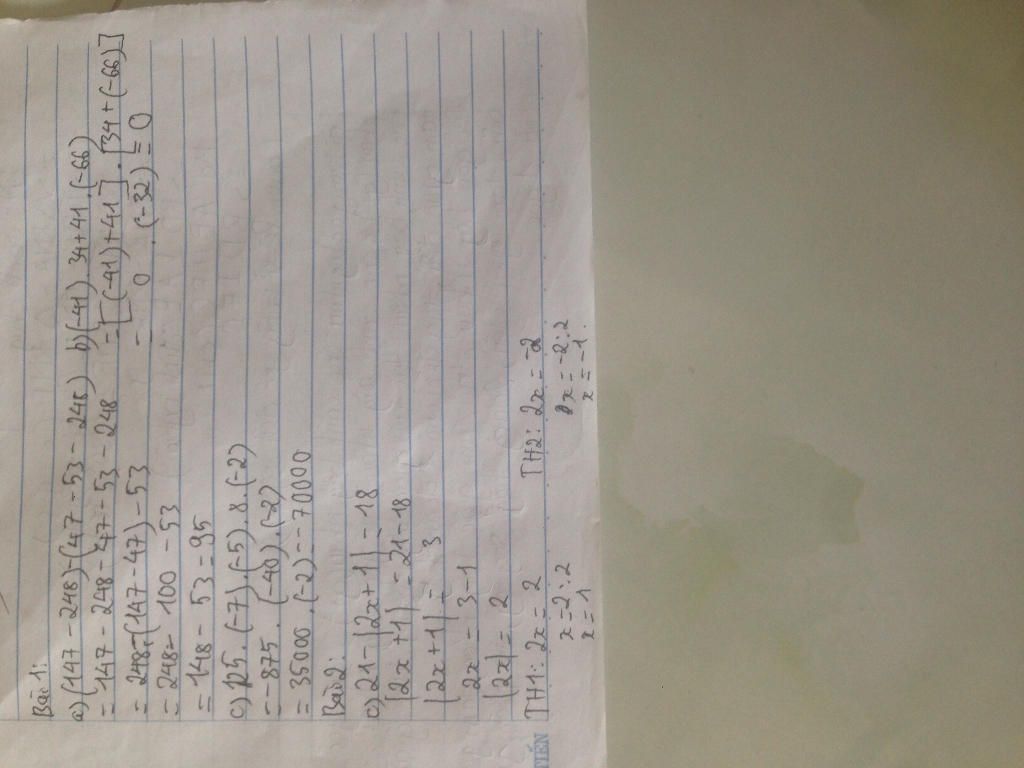 Bài 1:
a) (147 - 248) - (47 - 53 - 248) b) (-41) . 34 + 41 . (-66)
= 147 - 248 - 47 - 53 - 248 = [(-41) + 41] . [34 + (-66)]
= 248 - (147 - 47) - 53 = 0 . (-32) = 0
= 248 - 100 - 53
= 148 - 53 = 95
c) 125 . (-7) . (-5) . 8 . (-2)
= -875 . (-40) . (-2)
= 35000 . (-2) = -70000
Bài 2:
c) 21 - |2x + 1| = 18
|2x + 1| = 21 - 18
|2x + 1| = 3
2x = 3 - 1
|2x| = 2
TH1: 2x = 2 TH2: 2x = -2
x = 2 : 2 x = -2 : 2
x = 1 x = -1.
TIẾN